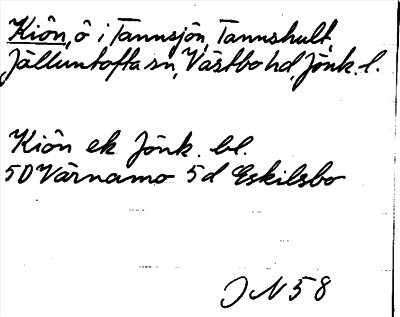 Kiön, ö i Tannsjön, Tannshult,
Jälluntofta sn, Västbo hd, Jönk. l.
Kiön ek Jönk. bl.
5D Värnamo 5d Eskilsbo
J N 58